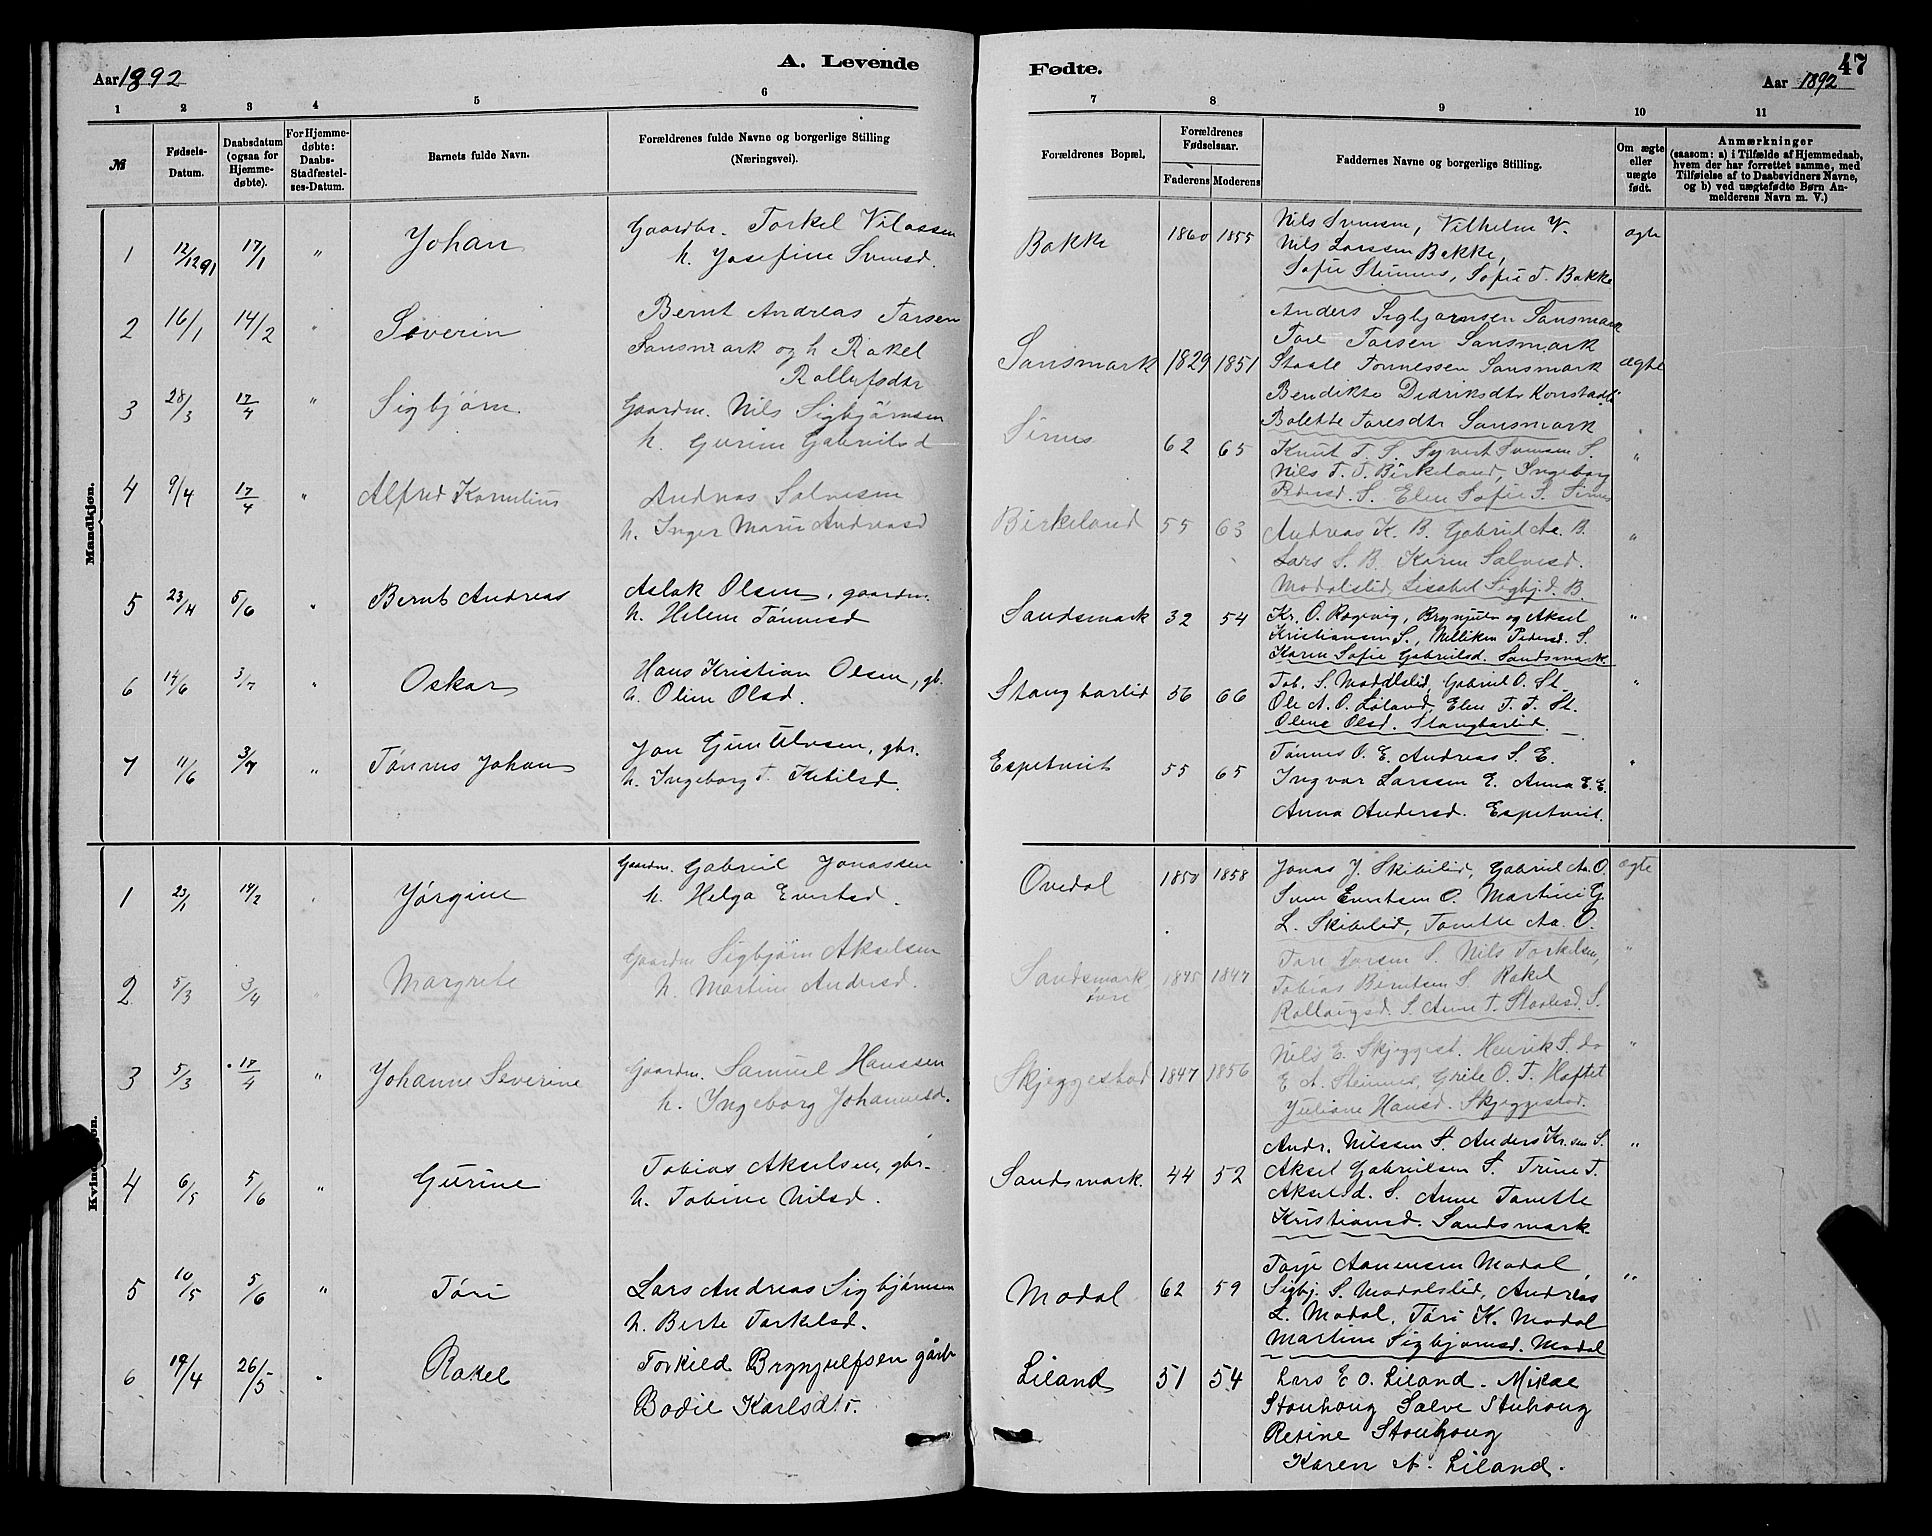 Aar 1892
A. Levende
Fødte.
47
Aar 1892
1 2 3 4 5 6 7 8 9 10 11
№
Fødsels-Datum.
Daabsdatum (ogsaa for Hjemme-døbte).
For Hjemme-døbte: Daabs-Stadfæstel-ses-Datum.
Barnets fulde Navn.
Forældrenes fulde Navne og borgerlige Stilling (Næringsvei).
Forældrenes Bopæl.
Forældrenes Fødselsaar.
Faderens Moderens
Faddernes Navne og borgerlige Stilling.
Om ægte eller uægte født.
Anmærkninger
(saasom: a) i Tilfælde af Hjemmedaab, hvem der har forrettet samme, med Tilføielse af to Daabsvidners Navne, og b) ved uægtefødte Børn An-melderens Navn m. V.)
Mandkjøn.
1 12/12 91 17/1 " Johan
Gaardbr. Torkel
h. Josefine Svensd.
Bakke 1860 1855
Nils Svensen, Vilhelm V.
Nils Larssen Bakke,
Sofie Steinnes, Sofie T. Bakke
ægte
2 16/1 14/2 " Severin
Bernt Andreas Tarsen
Sansmark og h Rakel
Rollufsdtr
Sansmark 1829 1851
Anders Sigbjørnsen Sansmark
Tore Torsen Sansmark
Staale Tønnessen Sansmark
Bendikte Didriksdtr
Bolette Toresdtr Sansmark
ægte
3 28/3 17/4 " Sigbjørn.
Gaardm. Nils Sigbjørnsen
h. Gurine Gabrielsd
Sirnes 62 65
Knut T. S. Syvert Svensen S.
Nils T. T. Birkeland, Ingeborg
Pedersd. S. Elen Sofie T. Sirnes
"
4 9/4 17/4 " Alfred Kornelius
Andreas Salvesen
h. Inger Marie Andreasd
Birkeland 55 63
Andreas K. B. Gabriel Aa. B.
Lars S. B. Karen Salvesd.
Modalslid, Lisabet Sigbj.d. B.
"
5 23/4 5/6 " Bernt Andreas
Aslak Olsen, gaardm.
h. Helene Tønnesd
Sandsmark 32 54
Kr. O. Røgevig, Brynjulv og Aksel
Kristiansen S., Millikea Pedersd. S.
Karen Sofie Gabrielsd. Sandsmark
"
6 14/6 3/7 " Oskar
Hans Kristian Olsen, gb.
h. Oline Olsd.
Stangbarlid 56 66
Tob. S. Modalslid, Gabriel O. St.
Ole A. O. Løland, Elen T. T. St.
Olene Olsd. Stangbarlid.
"
7 11/6 3/7 " Tønnes Johan
Jon Gunulvsen, gbr.
h. Ingeborg T. Ketilsd.
Espetveit 55 65
Tønnes O. E. Andreas S. E.
Ingvar Larssen E. Anna E. E.
Anna Andersd. Espetveit.
"
Kvindekjøn.
1 23/1 14/2 " Jørgine
Gaardm. Gabriel Jonassen
h. Helga Evertsd.
Ovedal 1850 1858
Jonas J. Skibelid, Gabriel Aa. O.
Sven Evertsen O. Martine G.
L. Skibelid, Tonette Aa. O.
ægte
2 5/3 3/4 " Margrete
Gaardm Sigbjørn Akselsen
h. Martine Andersd.
Sandsmark
øvre
1845 1847
Tore Torsen S. Nils Torkelsen,
Tobias Berntsen S. Rakel
S. Anne T. Staalesd. S.
"
3 5/3 17/4 " Johanne Severine
Gaardm. Samuel Hanssen
h. Ingeborg Johannesd.
Skjeggestad 1847 1856
Nils E. Skjeggest. Henrik S. do
E. A. Steinnes, Grete O. T. Haftet
Juliane Hansd. Skjeggestad.
"
4 6/5 5/6 " Gurine
Tobias Akselsen, gbr.
h. Tobine Nilsd.
Sandsmark. 44 52
Andr. Nilssen S. Anders Kr.sen S.
Aksel Gabrielsen S. Trine T.
Akseld. S. Anne Tonette
Kristiansd. Sandsmark
"
5 10/5 5/6 " Tøri
Lars Andreas Sigbjørnsen
h. Berte Torkelsd.
Modal 62 59
Torje Aanensen Modal,
Sigbj. S. Modalslid, Andreas
L. Modal, Tøri K. Modal
Martine Sigbjørnsd. Modal
"
6 19/4 26/5 " Rakel
Torkild Brynjulfsen gårbr
Bodil Karlsdtr.
Liland 51 54
Lars E O. Liland. Mikal
Stouhoug Salve Stuhoug
Resine Stouhoug
Karen A. Liland.